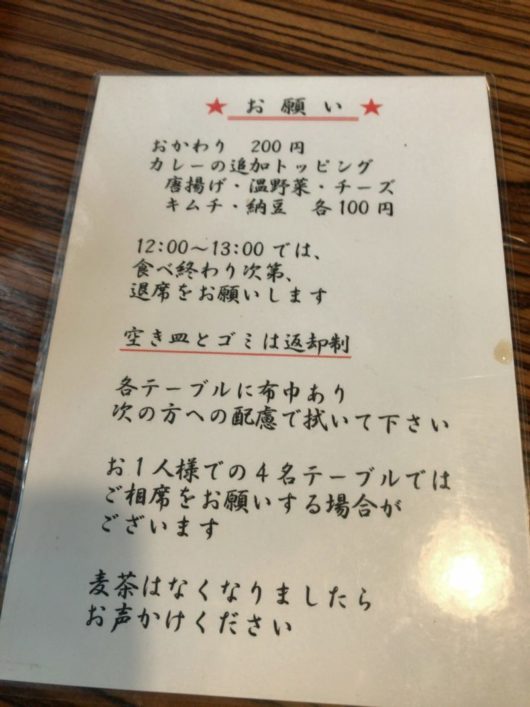 ★お願い★
おかわり　200円
カレーの追加トッピング
唐揚げ・温野菜・チーズ
キムチ・納豆　各100円
12:00〜13:00では、
食べ終わり次第、
退席をお願いします
空き皿とゴミは返却制
各テーブルに布巾あり
次の方への配慮で拭いて下さい
お1人様での4名テーブルでは
ご相席をお願いする場合が
ございます
麦茶はなくなりましたら
お声かけください